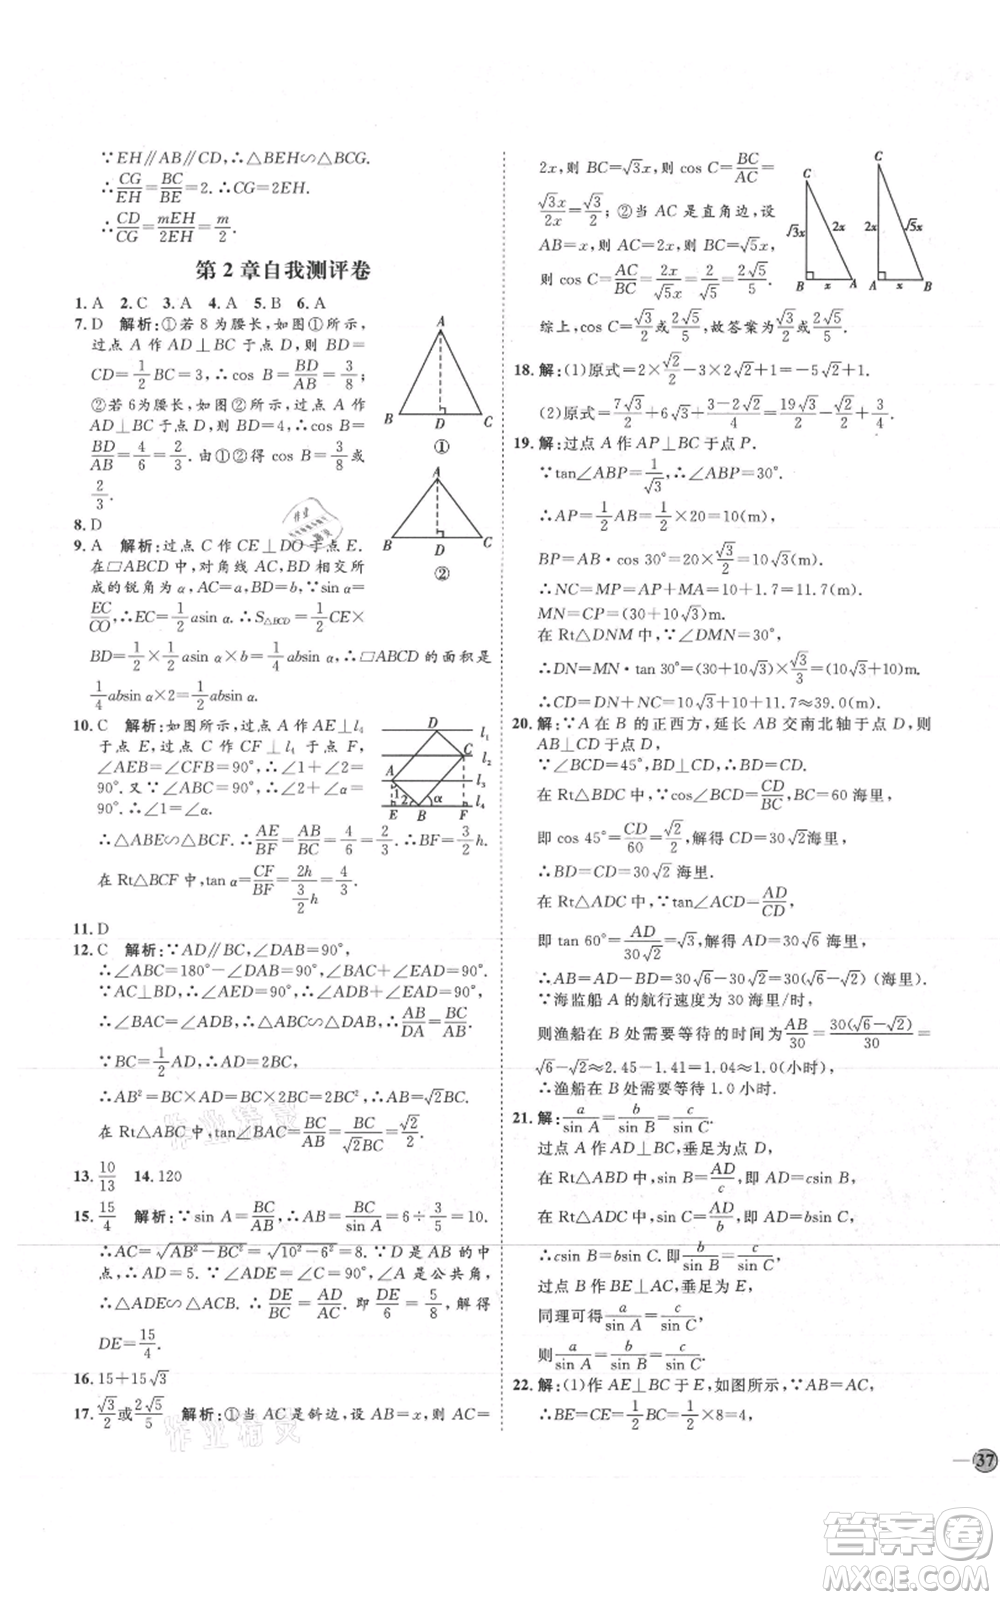 ∵EH∥AB∥CD,∴△BEH∽△BCG.
∴CG/EH=BC/BE=2.∴CG=2EH.
∴CD/CG=mEH/2EH=m/2.
第2章自我测评卷
1. A 2. C 3. A 4. A 5. B 6. A
7. D 解析:①若8为腰长,如图①所示,
过点A作AD⊥BC于点D,则BD=
CD=1/2BC=3.∴cos B=BD/AB=3/8;
②若6为腰长,如图②所示,过点A作
AD⊥BC于点D,则BD=4,∴cos B=
BD/AB=4/6=2/3.由①②得cos B=3/8或
2/3.
8. D
9. A 解析:过点C作CE⊥DO于点E.
∵在▱ABCD中,对角线AC,BD相交所
成的锐角为α,AC=a,BD=b,∵sin α=
EC/CO,∴EC=1/2asin α.∴S△BCD=1/2CE×
BD=1/2×1/2asin α×b=1/4absin α,∴▱ABCD的面积是
1/4absin α×2=1/2absin α.
10. C 解析:如图所示,过点A作AE⊥l₄
于点E,过点C作CF⊥l₄于点F,
∠AEB=∠CFB=90°,∴∠1+∠2=
90°.又∵∠ABC=90°,∴∠2+∠α=
90°.∴∠1=∠α.
∴△ABE∽△BCF.∴AE/BF=AB/BC=4/6=2/3.∴BF=3/2h.
在Rt△BCF中,tan α=CF/BF=2h/(3/2h)=4/3.
11. D
12. C 解析:∵AD∥BC,∠DAB=90°,
∴∠ABC=180°-∠DAB=90°,∠BAC+∠EAD=90°.
∵AC⊥BD,∴∠AED=90°.∴∠ADB+∠EAD=90°.
∴∠BAC=∠ADB,∴△ABC∽△DAB.∴AB/DA=BC/AB.
∵BC=1/2AD,∴AD=2BC.
∴AB²=BC×AD=BC×2BC=2BC²,∴AB=√2BC.
在Rt△ABC中,tan∠BAC=BC/AB=BC/√2BC=√2/2.
13. 10/13 14. 120
15. 15/4 解析:∵sin A=BC/AB,∴AB=BC/sin A=6÷3/5=10.
∴AC=√(AB²-BC²)=√(10²-6²)=8.∵D是AB的中
点,∴AD=1/2AB=5.∵∠ADE=∠C=90°,∠A是公共角,
∴△ADE∽△ACB.∴DE/BC=AD/AC.即DE/6=5/8,解得
DE=15/4.
16. 15+15√3
17. √3/2或2√5/5 解析:①当AC是斜边,设AB=x,则AC=
2x,则BC=√3x,则cos C=BC/AC=
√3x/2x=√3/2;②当AC是直角边,设
AB=x,则AC=2x,BC=√5x,
则cos C=AC/BC=2x/√5x=2√5/5.
综上,cos C=√3/2或2√5/5,故答案为√3/2或2√5/5.
18. 解:(1)原式=2×√2/2-3×2√2+1=-5√2+1.
(2)原式=7√3/2+6√3+(3-2√2)/4=19√3/2-√2/2+3/4.
19. 解:过点A作AP⊥BC于点P.
∵tan∠ABP=1/√3,∴∠ABP=30°.
∴AP=1/2AB=1/2×20=10(m).
BP=AB·cos 30°=20×√3/2=10√3(m).
∴NC=MP=AP+MA=10+1.7=11.7(m).
MN=CP=(30+10√3)m.
在Rt△DNM中,∵∠DMN=30°,
∴DN=MN·tan 30°=(30+10√3)×√3/3=(10√3+10)m.
∴CD=DN+NC=10√3+10+11.7≈39.0(m).
20. 解:∵A在B的正西方,延长AB交南北轴于点D,则
AB⊥CD于点D.
∵∠BCD=45°,BD⊥CD,∴BD=CD.
在Rt△BDC中,∵cos∠BCD=CD/BC,BC=60海里,
即cos 45°=CD/60=√2/2,解得CD=30√2海里.
∴BD=CD=30√2海里.
在Rt△ADC中,∵tan∠ACD=AD/CD,
即tan 60°=AD/30√2=√3,解得AD=30√6海里.
∴AB=AD-BD=30√6-30√2=30(√6-√2)(海里).
∵海监船A的航行速度为30海里/时,
则渔船在B处需要等待的时间为AB/30=30(√6-√2)/30=
√6-√2≈2.45-1.41=1.04≈1.0(小时).
∴渔船在B处需要等待1.0小时.
21. 解:a/sin A=b/sin B=c/sin C.
过点A作AD⊥BC,垂足为点D,
在Rt△ABD中,sin B=AD/c,即AD=csin B,
在Rt△ADC中,sin C=AD/b,即AD=bsin C,
∴csin B=bsin C.即b/sin B=c/sin C,
过点B作BE⊥AC,垂足为点E,
同理可得a/sin A=c/sin C,
则a/sin A=b/sin B=c/sin C.
22. 解:(1)作AE⊥BC于E,如图所示,∵AB=AC,
∴BE=CE=1/2BC=1/2×8=4,
A
B D C
①
A
B D C
②
D l₁
C l₂
A l₃
1 2 α l₄
E B F
C
√3x 2x
B x A
C
2x √5x
A x B
作业精灵
作业精灵
37
答案卷
MXQE.COM